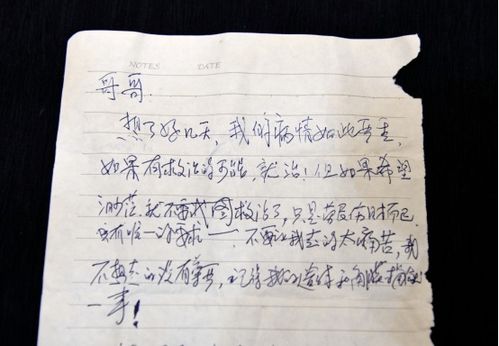 NOTES DATE
哥哥.
想了好几天, 我的病情如此严重,
如果有救治的可能, 就治! 但如果希望
渺茫, 就不要救治了, 只是劳民伤财而已.
我唯一的要求—— 不要让我走的太痛苦, 我
不想走的没有尊严, 记得我的遗体和角膜捐献
一事!